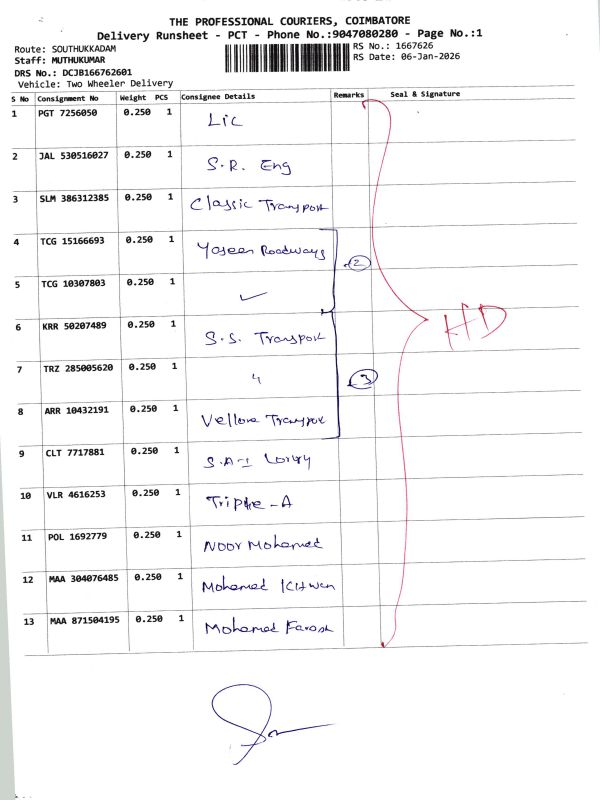 THE PROFESSIONAL COURIERS, COIMBATORE
Delivery Runsheet - PCT - Phone No.:9047080280 - Page No.:1
Route: SOUTHUKKADAM
RS No.: 1667626
Staff: MUTHUKUMAR
RS Date: 06-Jan-2026
DRS No.: DCJB166762601
Vehicle: Two Wheeler Delivery
S No Consignment No Weight PCS Consignee Details Remarks Seal & Signature
1 PGT 7256050 0.250 1 Lic
2 JAL 530516027 0.250 1 S.R. Eng
3 SLM 386312385 0.250 1 Classic Transport
4 TCG 15166693 0.250 1 Yaseen Roadways
2
5 TCG 10307803 0.250 1 ✓
6 KRR 50207489 0.250 1 S.S. Transport
HD
7 TRZ 285005620 0.250 1 "
3
8 ARR 10432191 0.250 1 Vellore Transport
9 CLT 7717881 0.250 1 S.A-I Lorry
10 VLR 4616253 0.250 1 Triple-A
11 POL 1692779 0.250 1 Noor Mohamed
12 MAA 304076485 0.250 1 Mohamed
13 MAA 871504195 0.250 1 Mohamed Farook